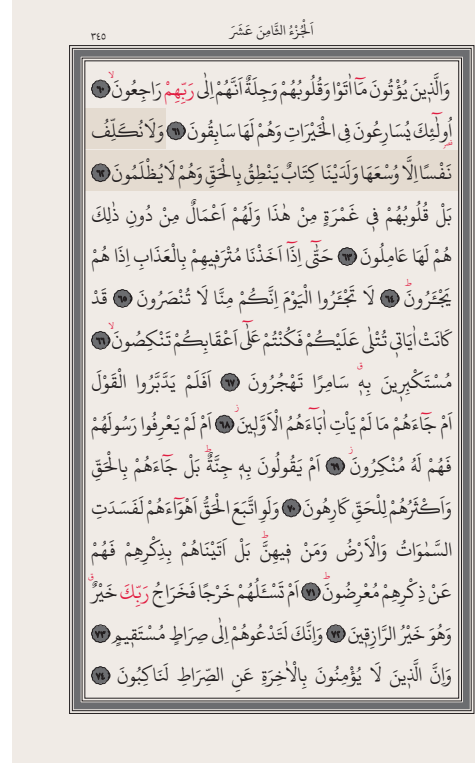 اَلْجُزْءُ الثَّامِنَ عَشَرَ
٣٤٥
وَالَّذ۪ينَ يُؤْتُونَ مَٓا اٰتَوْا وَقُلُوبُهُمْ وَجِلَةٌ اَنَّهُمْ اِلٰى رَبِّهِمْ رَاجِعُونَۙ ﴿٦٠﴾
اُو۬لٰٓئِكَ يُسَارِعُونَ فِي الْخَيْرَاتِ وَهُمْ لَهَا سَابِقُونَ ﴿٦١﴾ وَلَا نُكَلِّفُ
نَفْسًا اِلَّا وُسْعَهَا وَلَدَيْنَا كِتَابٌ يَنْطِقُ بِالْحَقِّ وَهُمْ لَا يُظْلَمُونَ ﴿٦٢﴾
بَلْ قُلُوبُهُمْ ف۪ي غَمْرَةٍ مِنْ هٰذَا وَلَهُمْ اَعْمَالٌ مِنْ دُونِ ذٰلِكَ
هُمْ لَهَا عَامِلُونَ ﴿٦٣﴾ حَتّٰٓى اِذَٓا اَخَذْنَا مُتْرَف۪يهِمْ بِالْعَذَابِ اِذَا هُمْ
يَجْـَٔرُونَۜ ﴿٦٤﴾ لَا تَجْـَٔرُوا الْيَوْمَ اِنَّكُمْ مِنَّا لَا تُنْصَرُونَ ﴿٦٥﴾ قَدْ
كَانَتْ اٰيَات۪ي تُتْلٰى عَلَيْكُمْ فَكُنْتُمْ عَلٰٓى اَعْقَابِكُمْ تَنْكِصُونَۙ ﴿٦٦﴾
مُسْتَكْبِر۪ينَ بِه۪ۗ سَامِرًا تَهْجُرُونَ ﴿٦٧﴾ اَفَلَمْ يَدَّبَّرُوا الْقَوْلَ
اَمْ جَٓاءَهُمْ مَا لَمْ يَاْتِ اٰبَٓاءَهُمُ الْاَوَّل۪ينَۘ ﴿٦٨﴾ اَمْ لَمْ يَعْرِفُوا رَسُولَهُمْ
فَهُمْ لَهُ مُنْكِرُونَۘ ﴿٦٩﴾ اَمْ يَقُولُونَ بِه۪ جِنَّةٌۜ بَلْ جَٓاءَهُمْ بِالْحَقِّ
وَاَكْثَرُهُمْ لِلْحَقِّ كَارِهُونَ ﴿٧٠﴾ وَلَوِ اتَّبَعَ الْحَقُّ اَهْوَٓاءَهُمْ لَفَسَدَتِ
السَّمٰوَاتُ وَالْاَرْضُ وَمَنْ ف۪يهِنَّۜ بَلْ اَتَيْنَاهُمْ بِذِكْرِهِمْ فَهُمْ
عَنْ ذِكْرِهِمْ مُعْرِضُونَۜ ﴿٧١﴾ اَمْ تَسْـَٔلُهُمْ خَرْجًا فَخَرَاجُ رَبِّكَ خَيْرٌۗ
وَهُوَ خَيْرُ الرَّازِق۪ينَ ﴿٧٢﴾ وَاِنَّكَ لَتَدْعُوهُمْ اِلٰى صِرَاطٍ مُسْتَق۪يمٍ ﴿٧٣﴾
وَاِنَّ الَّذ۪ينَ لَا يُؤْمِنُونَ بِالْاٰخِرَةِ عَنِ الصِّرَاطِ لَنَاكِبُونَ ﴿٧٤﴾